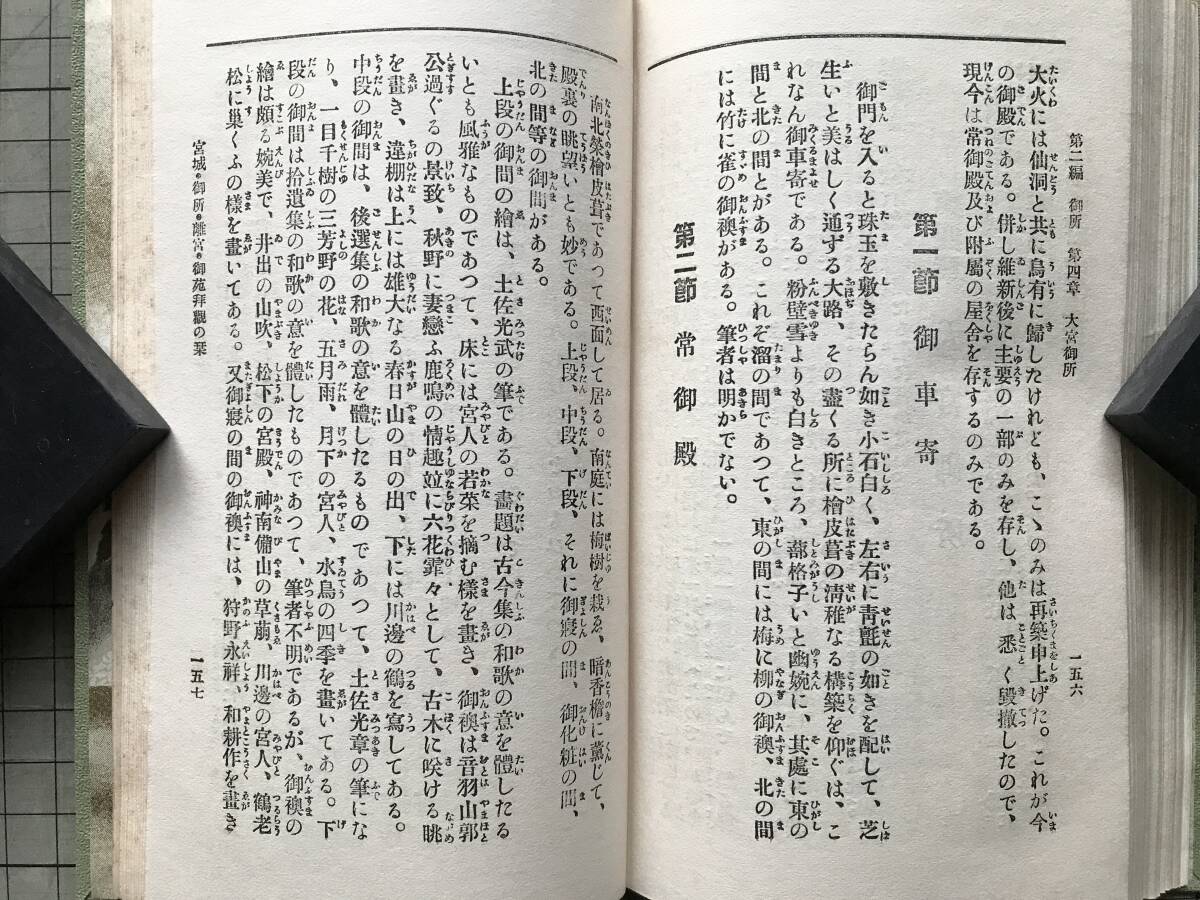 第二編 御所 第四章 大宮御所
一五六
大火には仙洞と共に烏有に歸したけれども、こゝのみは再築申上げた。これが今
の御殿である。併し維新後に主要の一部のみを存し、他は悉く毀撤したので、
現今は常御殿及び附屬の屋舍を存するのみである。
第一節 御車寄
御門を入ると珠玉を敷きたらん如き小石白く、左右に靑氈の如きを配して、芝
生いと美はしく通ずる大路、その盡くる所に檜皮葺の淸雅なる構築を仰ぐは、こ
れなん御車寄である。粉壁雪よりも白きところ、蔀格子いと幽婉に、其處に東の
間と北の間とがある。これぞ溜の間であつて、東の間には梅に柳の御襖、北の間
には竹に雀の御襖がある。筆者は明かでない。
第二節 常御殿
南北榮檜皮葺であつて西面して居る。南庭には梅樹を栽ゑ、暗香檐に薰じて、
殿裏の眺望いとも妙である。上段、中段、下段、それに御寢の間、御化粧の間、
北の間等の御間がある。
上段の御間の繪は、土佐光武の筆である。畵題は古今集の和歌の意を體したる
いとも風雅なものであつて、床には宮人の若菜を摘む樣を畫き、御襖は音羽山郭
公過ぐるの景致、秋野に妻戀ふ鹿鳴の情趣竝に六花霏々として、古木に咲ける眺
を畫き、違棚は上には雄大なる春日山の日の出、下には川邊の鶴を寫してある。
中段の御間は、後選集の和歌の意を體したるものであつて、土佐光章の筆にな
り、一目千樹の三芳野の花、五月雨、月下の宮人、水鳥の四季を畫いてある。下
段の御間は拾遺集の和歌の意を體したものであつて、筆者不明であるが、御襖の
繪は頗る婉美で、井出の山吹、松下の宮殿、神南備山の草萠、川邊の宮人、鶴老
松に巢くふの樣を畫いてある。又御寢の間の御襖には、狩野永祥、和耕作を畫き
宮城・御所・離宮・御苑拜觀の栞
一五七